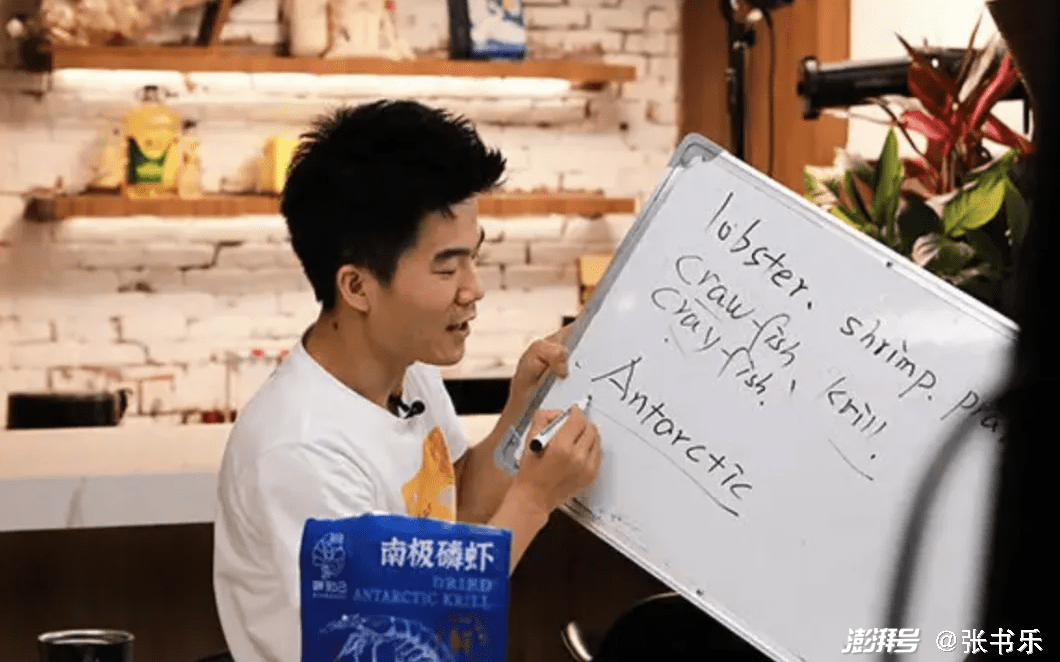 lobster. shrimp.
craw-fish
cray-fish. krill.
Antarctic
南极磷虾
DRIED
ANTARCTIC KRILL
澎湃号 @张书乐